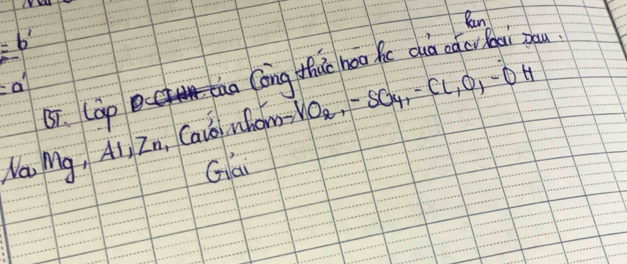 = b'
= a'
kim
BT. Lập của Công thức hóa học của các loại sau.
Na, Mg, Al, Zn, Ca với nhóm -NO2, -SO4, -Cl, O, -OH
Giải